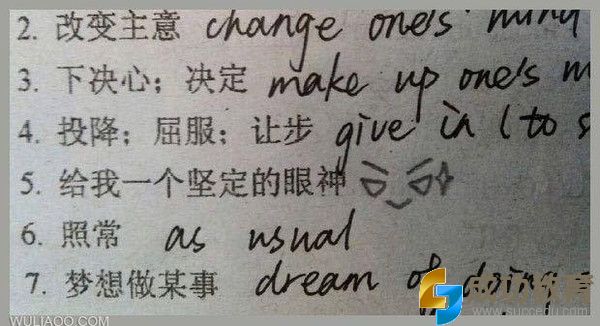 2. 改变主意 change one's mind
3. 下决心；决定 make up one's m
4. 投降；屈服；让步 give in (to s
5. 给我一个坚定的眼神
6. 照常 as usual
7. 梦想做某事 dream of doing
成功教育
www.succedu.com
WULIAOO.COM